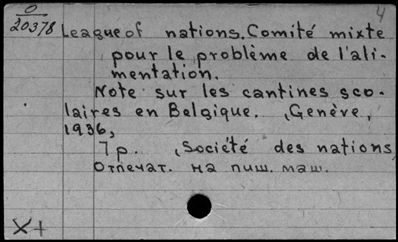 O
20378
4
League of nations. Comité mixte
pour le problème de l'ali-
mentation.
Note sur les cantines sco-
laires en Belgique. , Genève,
1936,
7 p. , Société des nations,
Отпечат. на пиш. маш.
X+